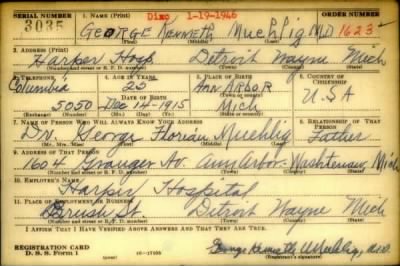 SERIAL NUMBER 1. NAME (Print) Disc 1-19-1946 ORDER NUMBER
3035 GEORGE KENNETH Muehlig M.D 1623
(First) (Middle) (Last)
2. ADDRESS (Print)
Harper Hosp Detroit Wayne Mich
(Number and street or R. F. D. number) (Town) (County) (State)
3. TELEPHONE 4. AGE IN YEARS 5. PLACE OF BIRTH 6. COUNTRY OF CITIZENSHIP
Columbia 25 ANN ARBOR
DATE OF BIRTH (Town or county) U.S.A
5050 Dec 14-1915 Mich
(Exchange) (Number) (Mo.) (Day) (Yr.) (State or country)
7. NAME OF PERSON WHO WILL ALWAYS KNOW YOUR ADDRESS 8. RELATIONSHIP OF THAT PERSON
Dr. George Florian Muehlig Father
(Mr., Mrs., Miss) (First) (Middle) (Last)
9. ADDRESS OF THAT PERSON
1604 Granger Av. Ann Arbor - Washtenaw, Mich
(Number and street or R. F. D. number) (Town) (County) (State)
10. EMPLOYER'S NAME
Harper Hospital
11. PLACE OF EMPLOYMENT OR BUSINESS
Brush St. Detroit Wayne Mich
(Number and street or R. F. D. number) (Town) (County) (State)
I AFFIRM THAT I HAVE VERIFIED ABOVE ANSWERS AND THAT THEY ARE TRUE.
REGISTRATION CARD
D. S. S. Form 1 16-17105 George Kenneth Muehlig, M.D.
(over) (Registrant's signature)